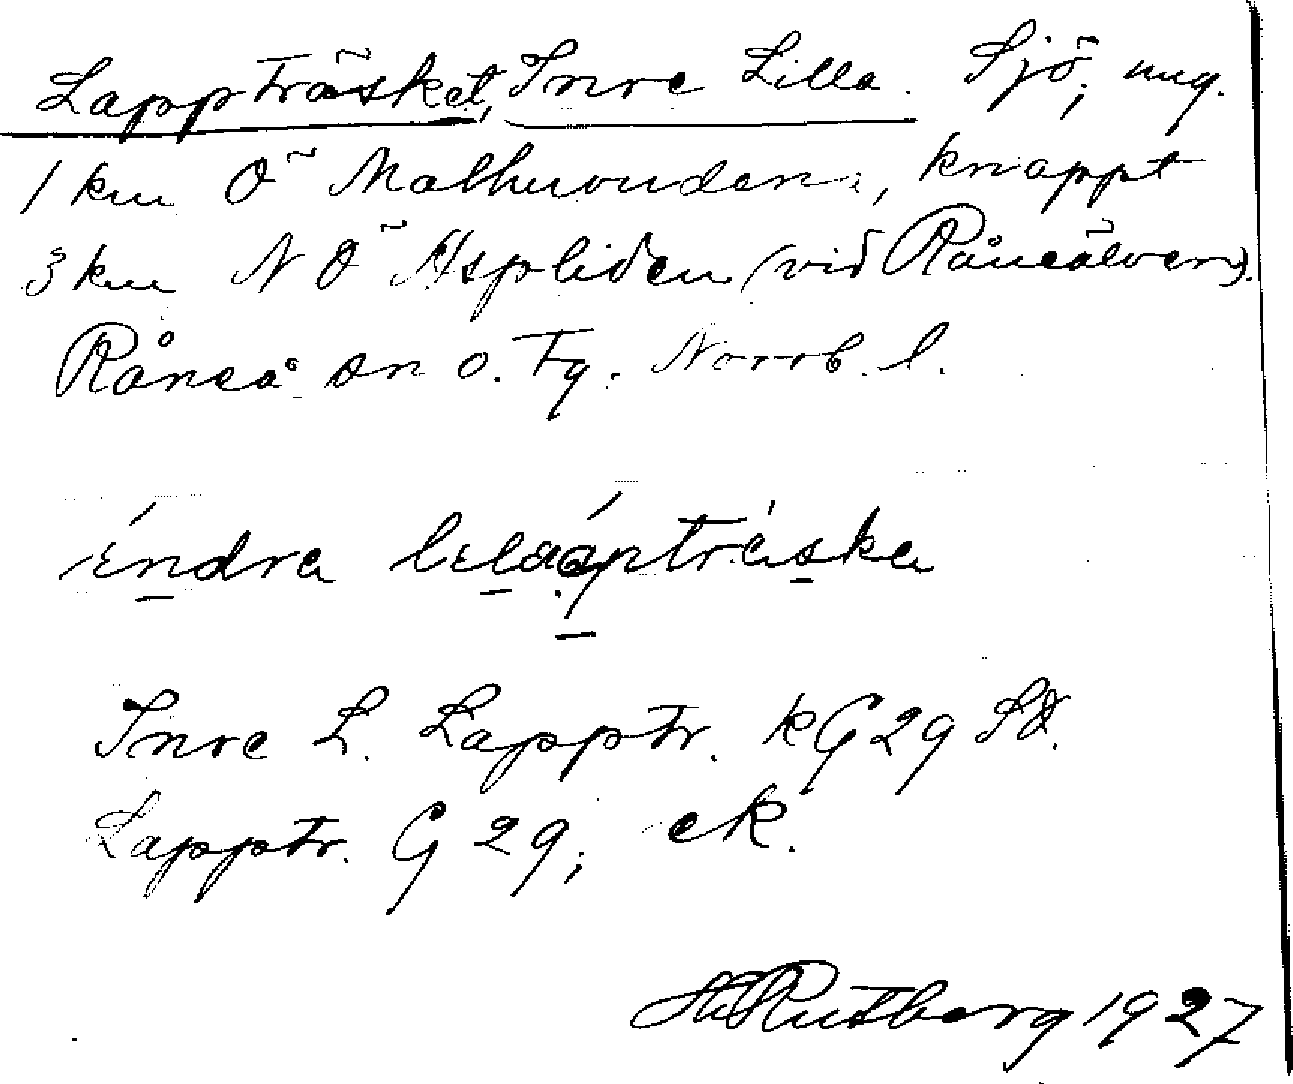 Lappträsket, Inre Lilla. Sjö; ung.
1 km Ö Malhuvuden, knappt
3 km NÖ Aspliden (vid Råneälven).
Råneå sn o. Tg. Norrb. l.
éndra
Inre L. Lapptr. kG29 SÖ.
Lapptr. G29; ek.
Rutberg 1927